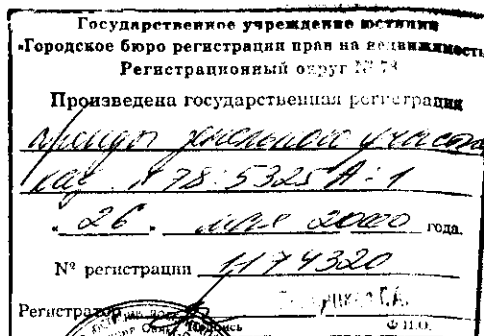 Государственное учреждение юстиции
«Городское бюро регистрации прав на недвижимость
Регистрационный округ № 78
Произведена государственная регистрация
аренды земельного участка
кад. № 78:5325 А:1
« 26 » мая 2000 года
№ регистрации 1174320
Регистратор
Подпись Ф.И.О.